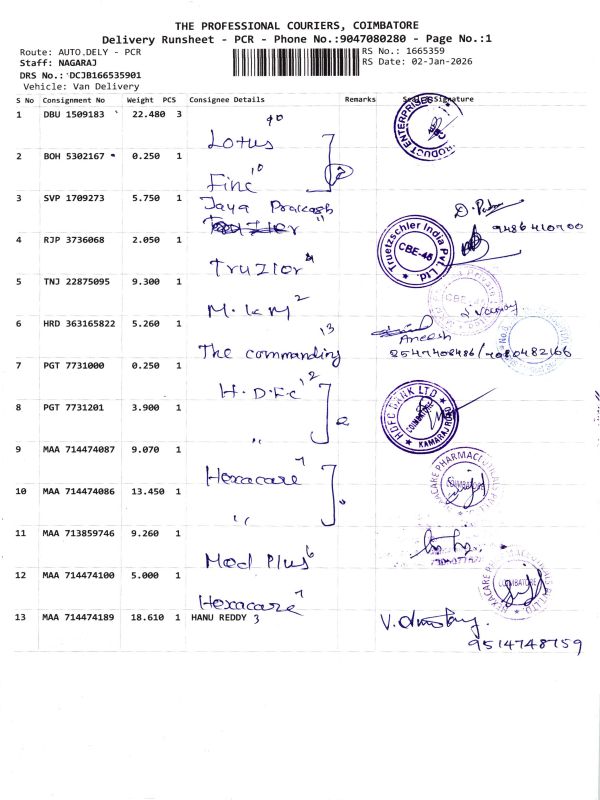 THE PROFESSIONAL COURIERS, COIMBATORE
Delivery Runsheet - PCR - Phone No.:9047080280 - Page No.:1
Route: AUTO.DELY - PCR
RS No.: 1665359
Staff: NAGARAJ
RS Date: 02-Jan-2026
DRS No.: DCJB166535901
Vehicle: Van Delivery
S No Consignment No Weight PCS Consignee Details Remarks Signature
1 DBU 1509183 22.480 3
Lotus
2 BOH 5302167 0.250 1
Finc
3 SVP 1709273 5.750 1 Jaya Prakash
9486410900
4 RJP 3736068 2.050 1
Truetzschler India Pvt. Ltd. CBE-45
5 TNJ 22875095 9.300 1
M.K.M 2
CBE
6 HRD 363165822 5.260 1
The commanding 13
Aneesh
7 PGT 7731000 0.250 1
H.D.F.C 12
8 PGT 7731201 3.900 1
"
HDFC BANK LTD COIMBATORE KAMARAJ ROAD
9 MAA 714474087 9.070 1
Hexacare 7
10 MAA 714474086 13.450 1
"
11 MAA 713859746 9.260 1
Med Plus 6
12 MAA 714474100 5.000 1
Hexacare 7
HEXACARE PHARMACEUTICALS PVT.LTD. COIMBATORE
13 MAA 714474189 18.610 1 HANU REDDY 3
9514748759